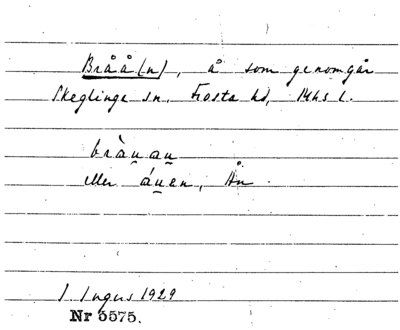 Bråå(n), å som genomgår
Skeglinge sn, Frosta hd, Mhs l.
bràu̯au̯
eller áu̯en, Ån.
I. Ingers 1929
Nr 5575.